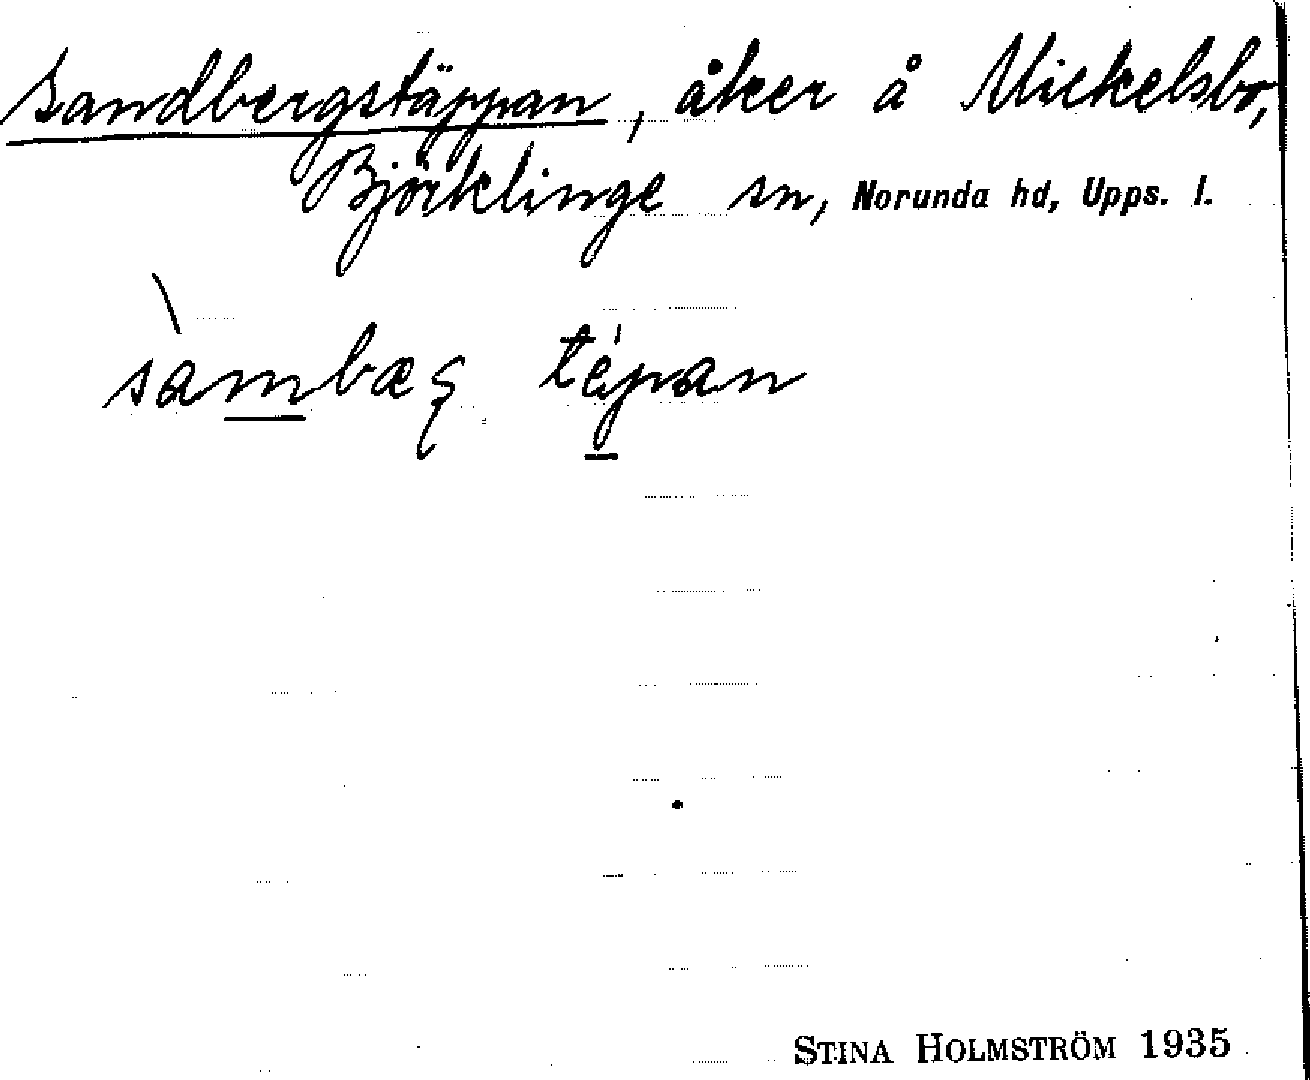 Sandbergstäppan, åker å Mickelsbo,
Björklinge sn, Norunda hd, Upps. l.
STINA HOLMSTRÖM 1935